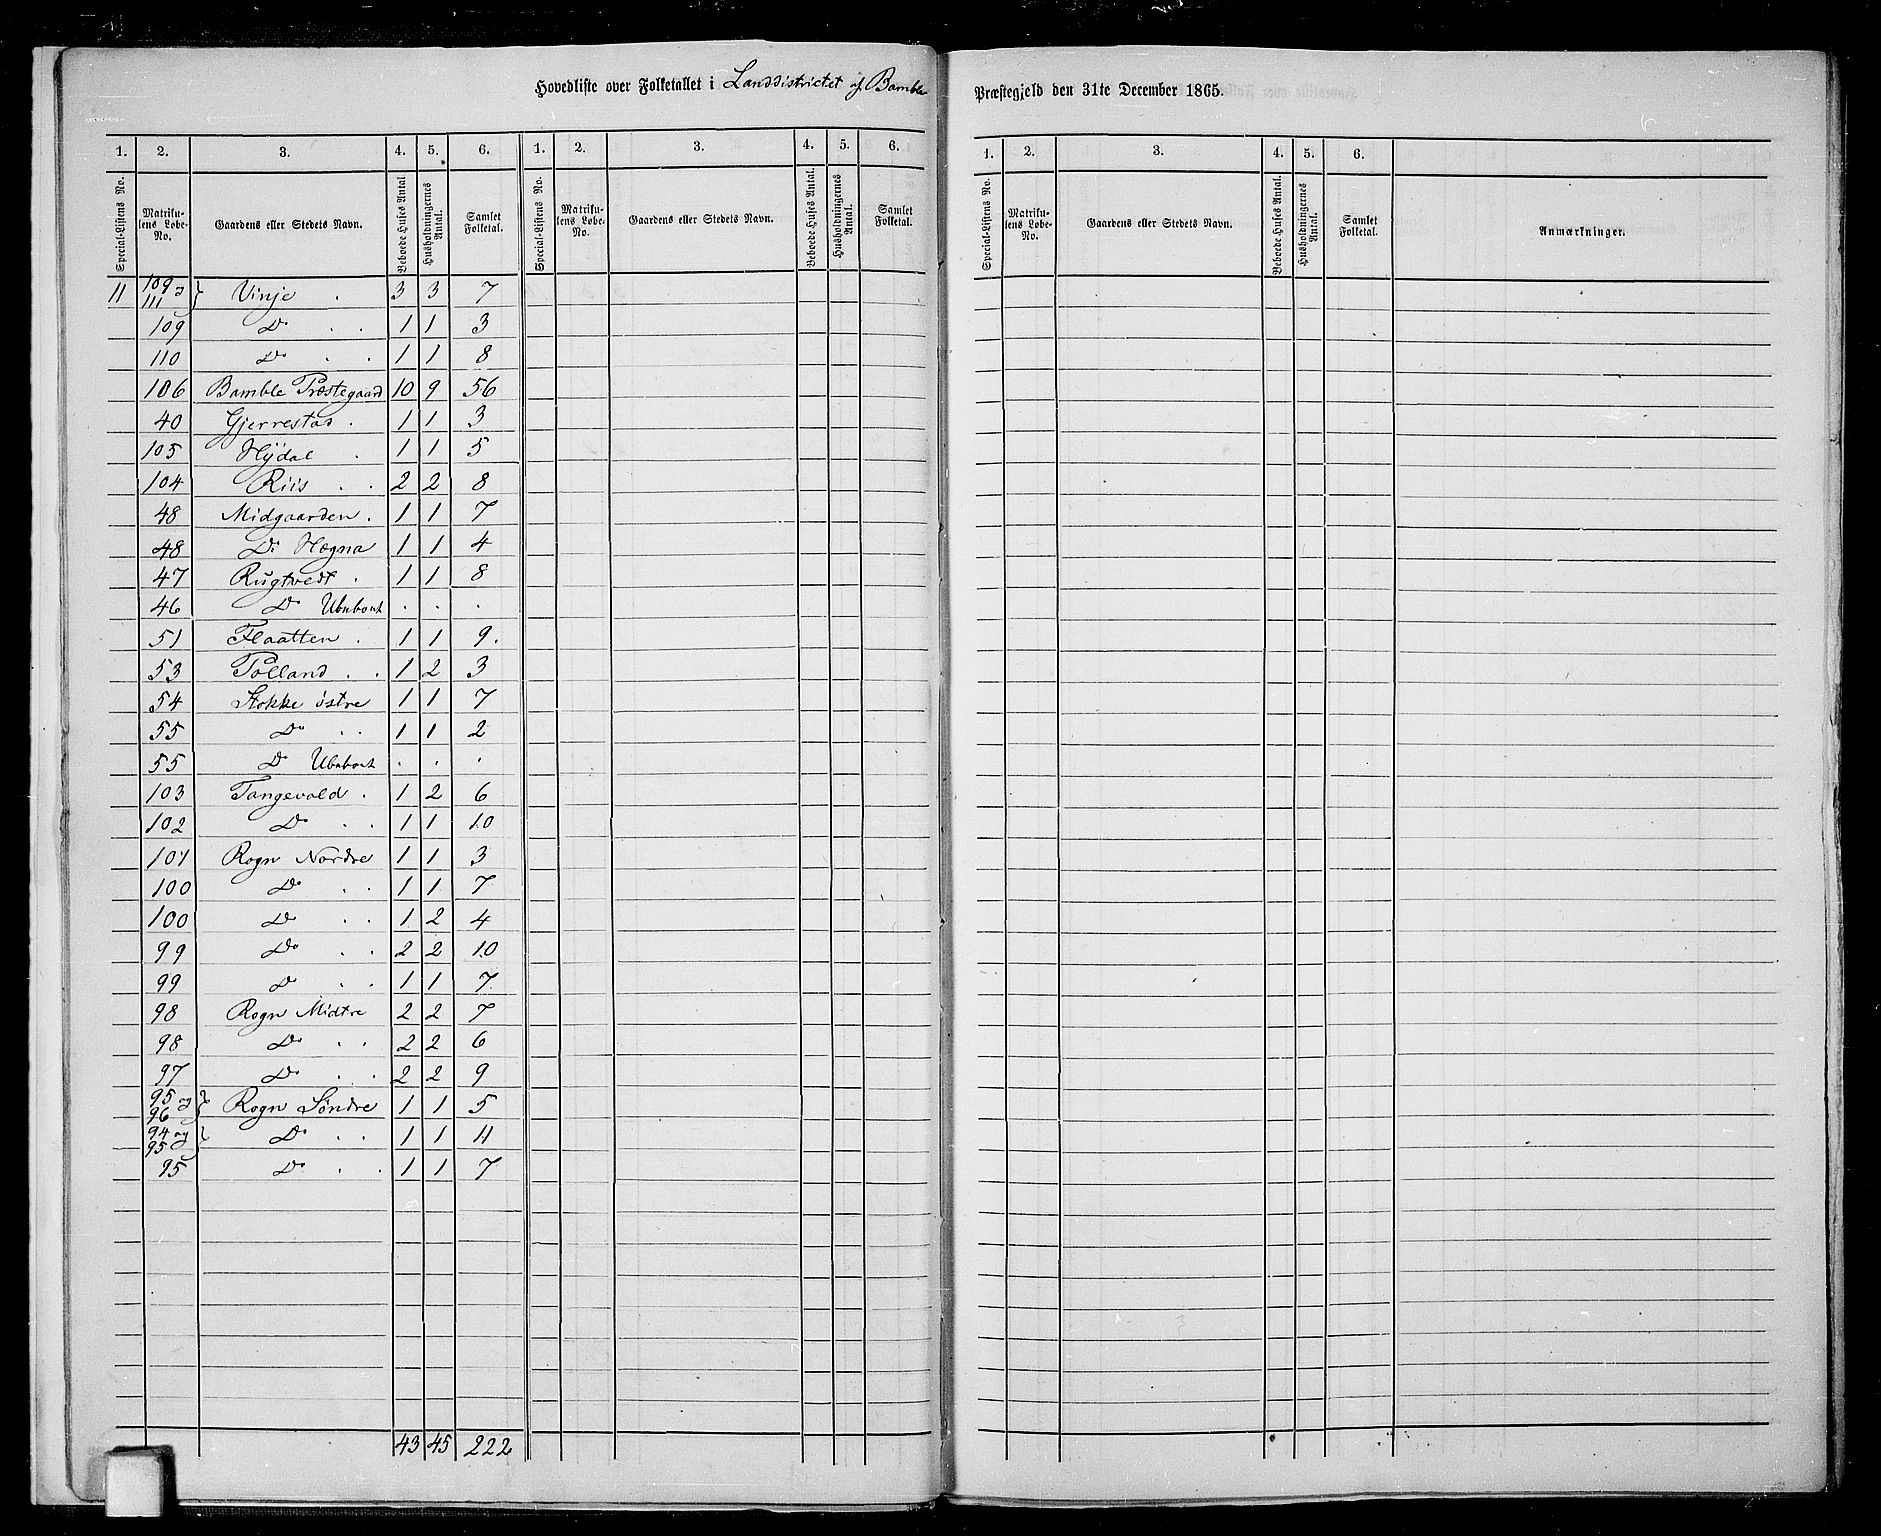 Hovedliste over Folketallet i Landdistrictet af Bamble Præstegjeld den 31te December 1865.
1. 2. 3. 4. 5. 6. 1. 2. 3. 4. 5. 6. 1. 2. 3. 4. 5. 6.
Special-Listens No. Matrikulens Løbe-No. Gaardens eller Stedets Navn. Beboede Huses Antal Husholdningernes Antal. Samlet Folketal. Special-Listens No. Matrikulens Løbe-No. Gaardens eller Stedets Navn. Beboede Huses Antal. Husholdningernes Antal. Samlet Folketal. Special-Listens No. Matrikulens Løbe-No. Gaardens eller Stedets Navn. Beboede Huses Antal. Husholdningernes Antal. Samlet Folketal. Anmærkninger.
11 109 og 111 } Vinje . 3 3 7
109 Do . . 1 1 3
110 Do . . 1 1 8
106 Bamble Præstegaard 10 9 56
40 Gjerrestad . 1 1 3
105 Hydal . 1 1 5
104 Riis . . 2 2 8
48 Midgaarden . 1 1 7
48 Do Hegna 1 1 4
47 Rugtvedt . 1 1 8
46 Do Ubeboet . . .
51 Flaatten . 1 1 9.
53 Tolland . . 1 2 3
54 Stokke østre 1 1 7
55 Do . . 1 1 2
55 Do Ubeboet . . .
103 Tangevald . 1 2 6
102 Do . . 1 1 10
101 Rogn Nordre 1 1 3
100 Do . . 1 1 7
100 Do . . 1 2 4
99 Do . . 2 2 10
99 Do . . 1 1 7
98 Rogn Midtre 2 2 7
98 Do . . 2 2 6
97 Do . . 2 2 9
95 og 96 } Rogn Søndre 1 1 5
94 og 95 } Do . . 1 1 11
95 Do . . 1 1 7
43 45 222